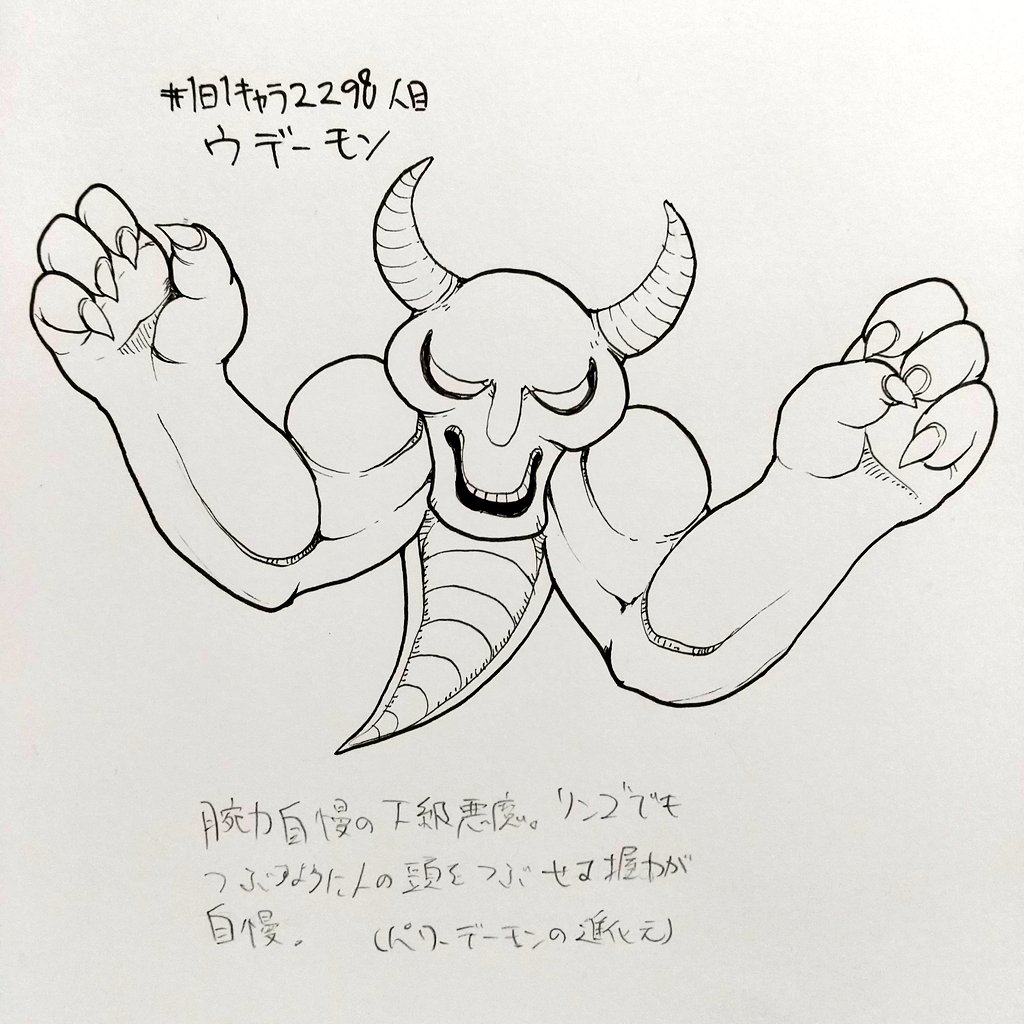 #1日1キャラ2298人目
ウデーモン
腕力自慢の下級悪魔。リンゴでも
つぶすように人の頭をつぶせる握力が
自慢。 (パワーデーモンの進化元)